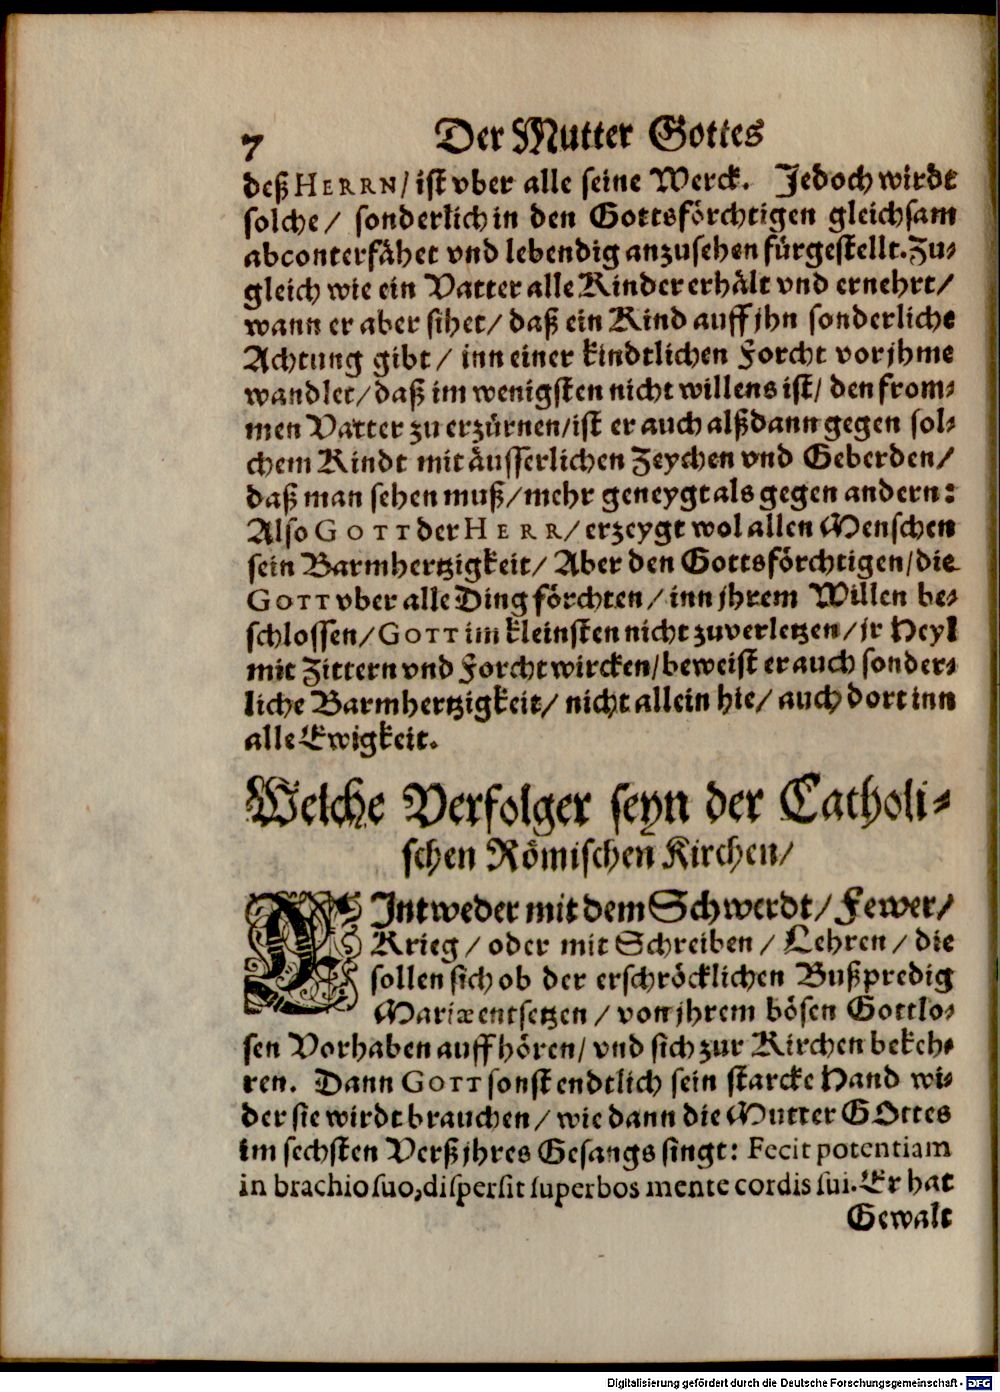 7 Der Mutter Gottes
deß HERRN/ ist vber alle seine Werck. Jedoch wirdt
solche/ sonderlich in den Gottsförchtigen gleichsam
abconterfähet vnd lebendig anzusehen fürgestellt. Zu-
gleich wie ein Vatter alle Kinder erhält vnd ernehrt/
wann er aber sihet/ daß ein Kind auff jhn sonderliche
Achtung gibt/ inn einer kindtlichen Forcht vor jhme
wandlet/ daß im wenigsten nicht willens ist/ den from-
men Vatter zu erzürnen/ ist er auch alßdann gegen sol-
chem Kindt mit äusserlichen Zeychen vnd Geberden/
daß man sehen muß/ mehr geneygt als gegen andern:
Also GOTT der HERR/ erzeygt wol allen Menschen
sein Barmhertzigkeit/ Aber den Gottsförchtigen/ die
GOTT vber alle Ding förchten/ inn jhrem Willen be-
schlossen/ GOTT im kleinsten nicht zuverletzen/ jr Heyl
mit Zittern vnd Forcht wircken/ beweist er auch sonder-
liche Barmhertzigkeit/ nicht allein hie/ auch dort inn
alle Ewigkeit.
Welche Verfolger seyn der Catholi-
schen Römischen Kirchen/
EIntweder mit dem Schwerdt/ Fewer/
Krieg/ oder mit Schreiben/ Lehren/ die
sollen sich ob der erschröcklichen Bußpredig
Mariæ entsetzen/ von jhrem bösen Gottlo-
sen Vorhaben auffhören/ vnd sich zur Kirchen bekeh-
ren. Dann GOTT sonst endtlich sein starcke Hand wi-
der sie wirdt brauchen/ wie dann die Mutter GOttes
im sechsten Verß jhres Gesangs singt: Fecit potentiam
in brachio suo, dispersit superbos mente cordis sui. Er hat
Gewalt
Digitalisierung gefördert durch die Deutsche Forschungsgemeinschaft - DFG